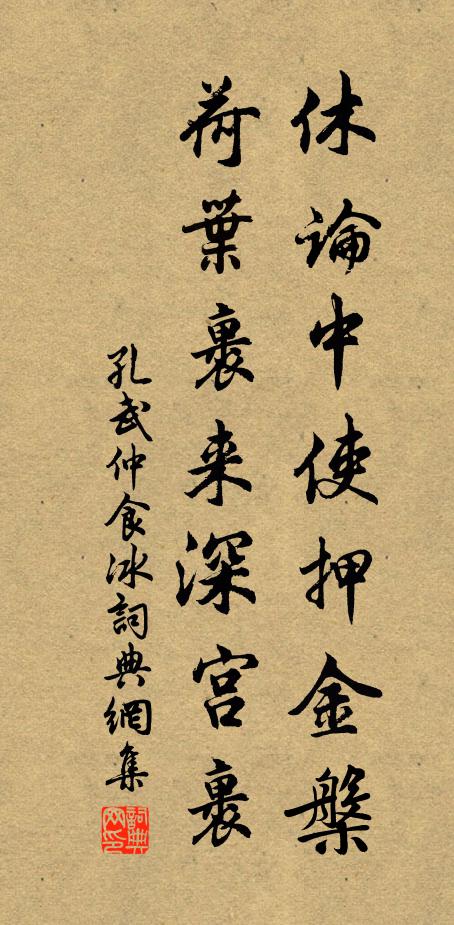 休論中使押金槃
荷葉裹来深宫裏
孔武仲食冰詞典網集
詞典
网印